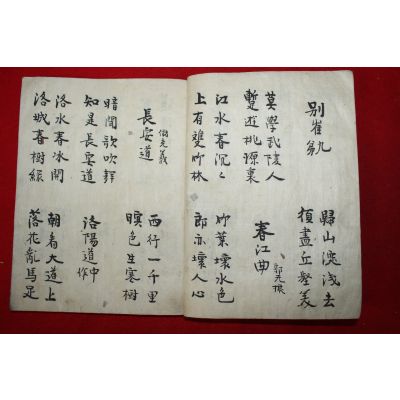 別崔九
歸山深淺去
須盡丘壑美
莫學武陵人
暫遊桃源裏
春江曲
郭元振
江水春沉々
上有雙竹林
竹葉壞水色
郎亦壞人心
長安道
儲光義
西行一千里
暝色生寒樹
暗聞歌吹聲
知是長安道
洛陽道中作
洛水春冰開
洛城春樹綠
朝看大道上
落花亂馬足